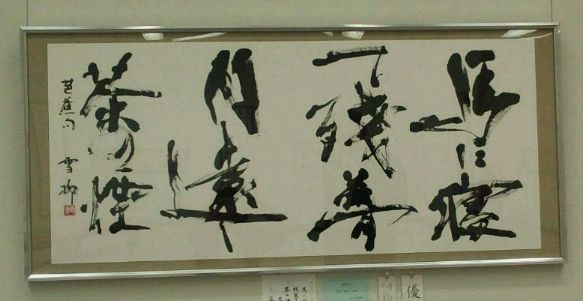 馬に寝
て残夢
月遠し
茶の煙
芭蕉句 雪柳
優